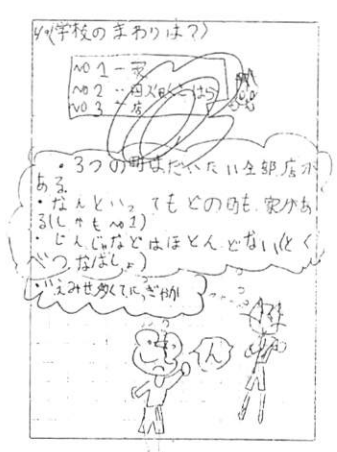 4.(学校のまわりは?)
NO 1 … 家
NO 2 …
NO 3 … 店
・3つの町はだいたい全部店が
ある
・なんといっても どの町も、家があ
る(しかも NO1)
・じんじゃなどはほとんどない(とく
べつなばしょ)
みせ多くてにぎやか
ん